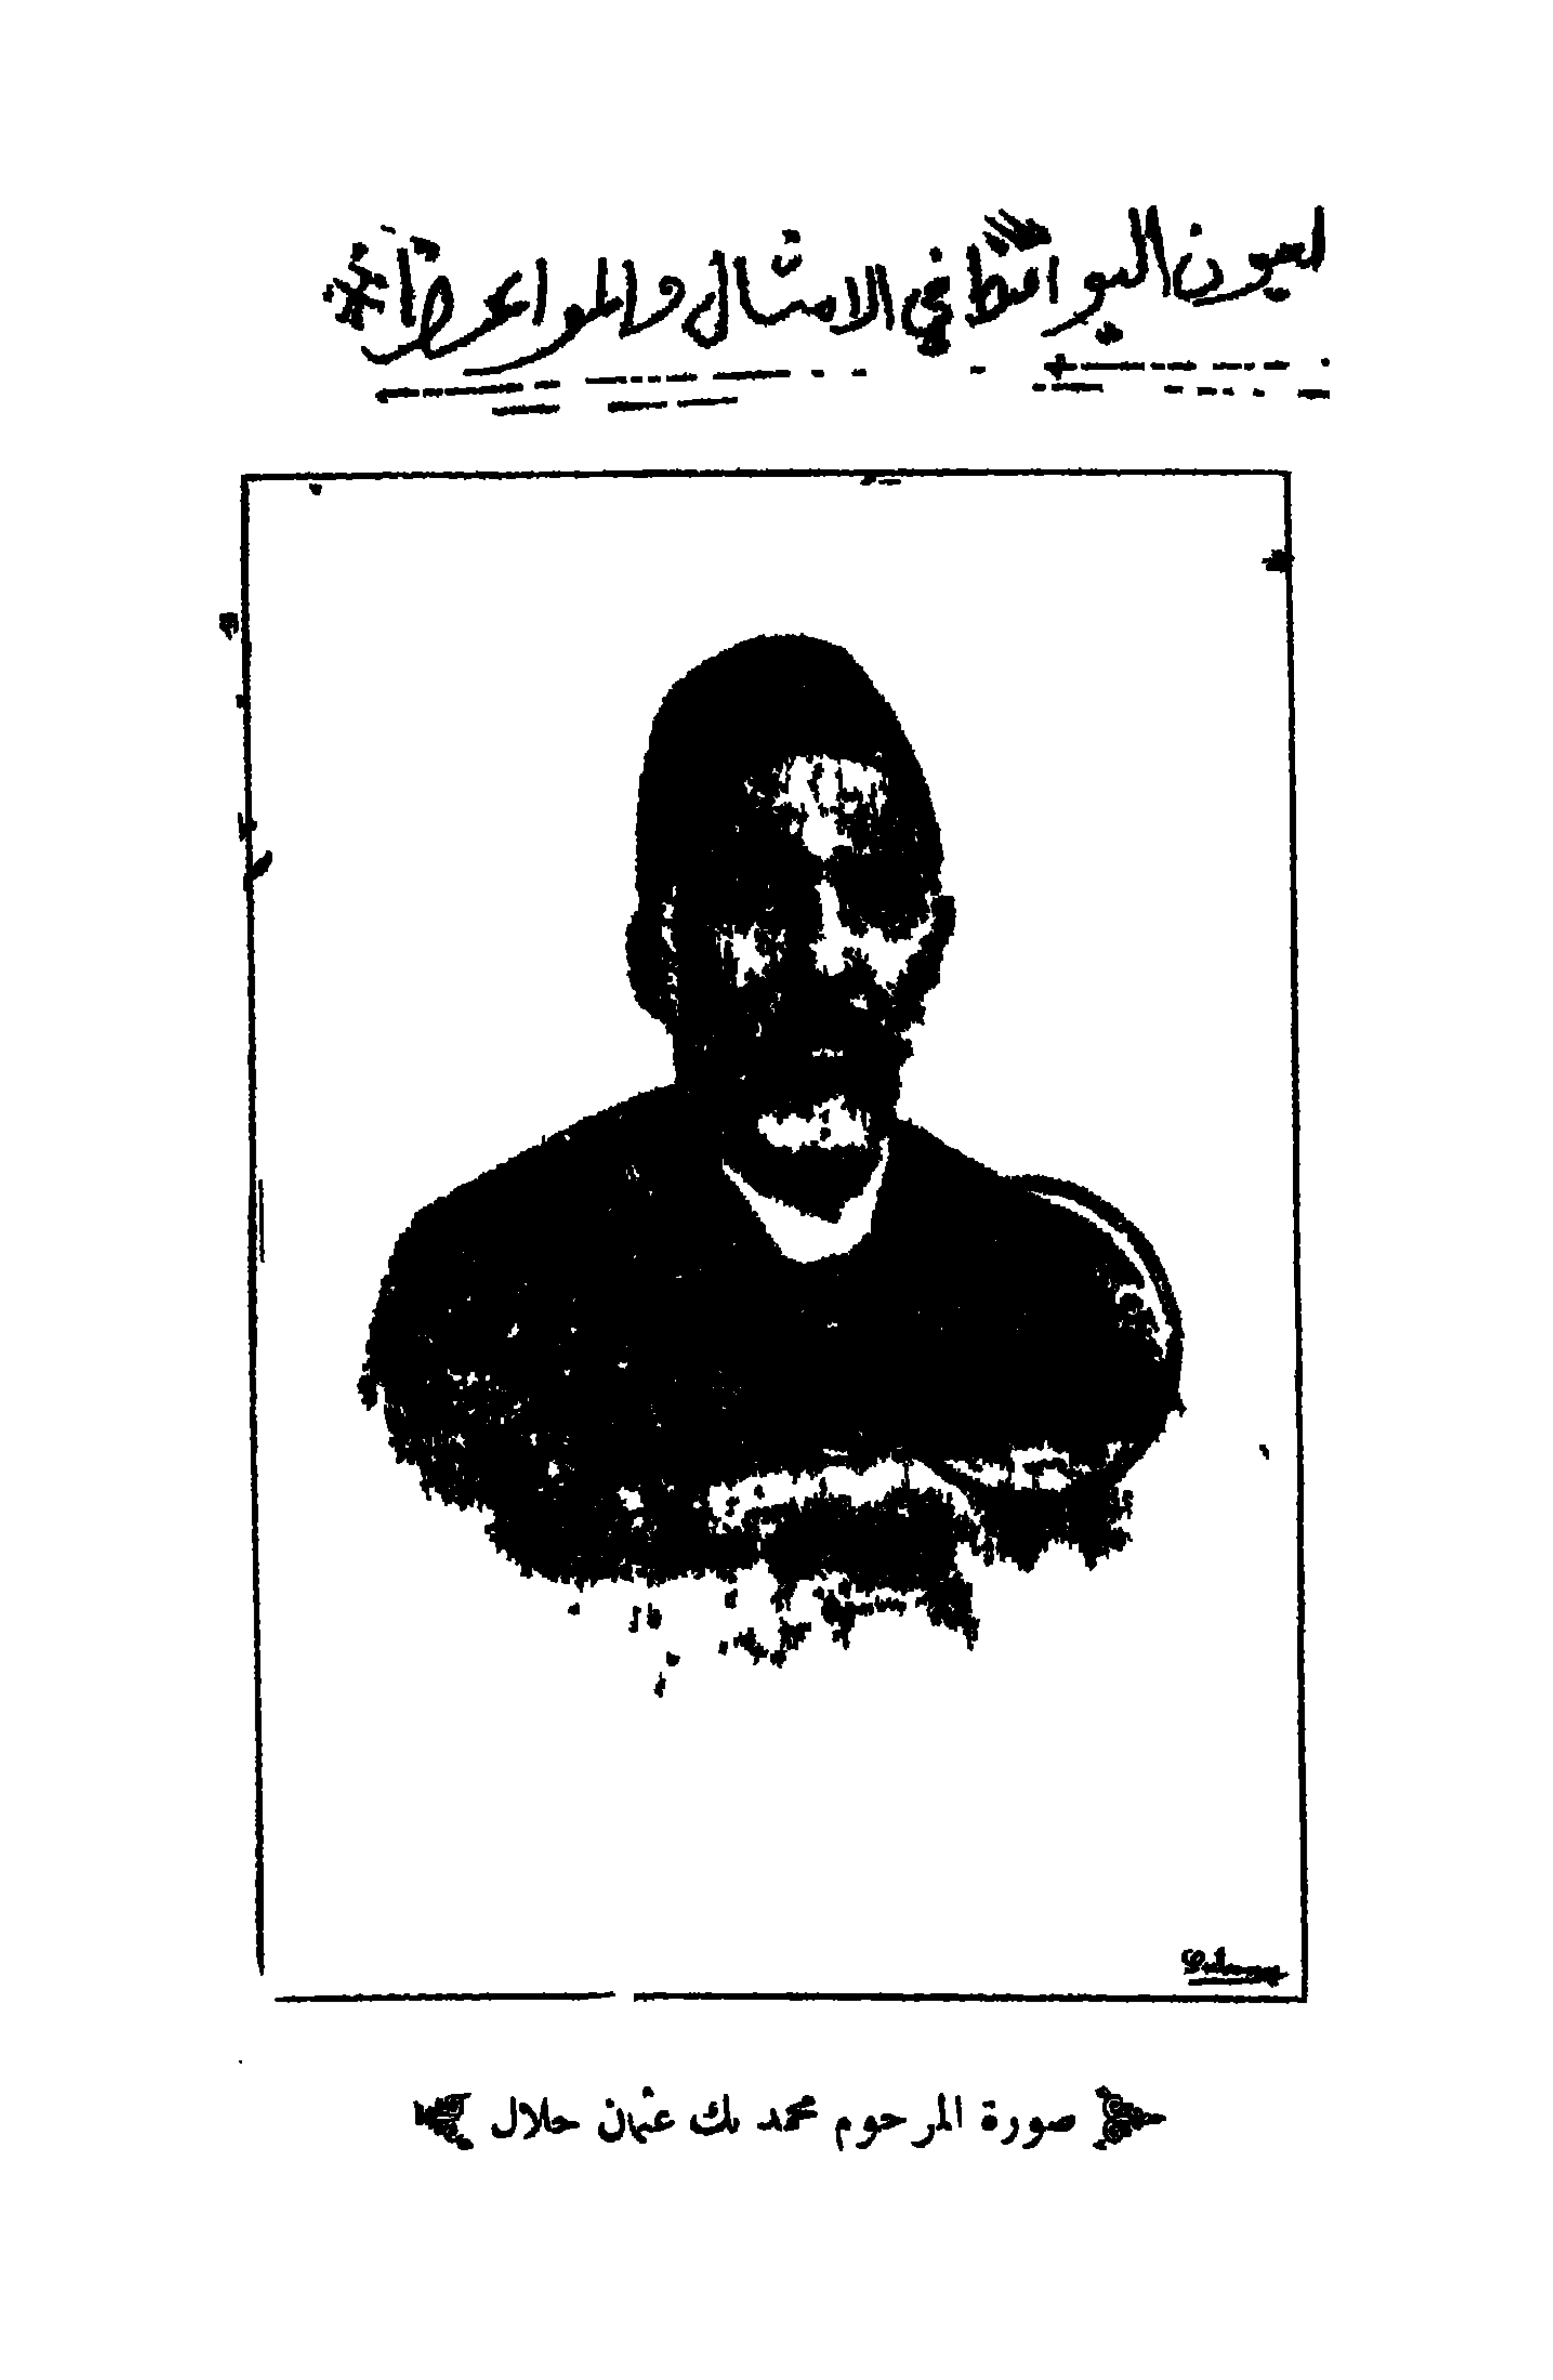 العيون اليواقظ في الامثال والمواعظ
صورة المرحوم محمد بك عثمان جلال